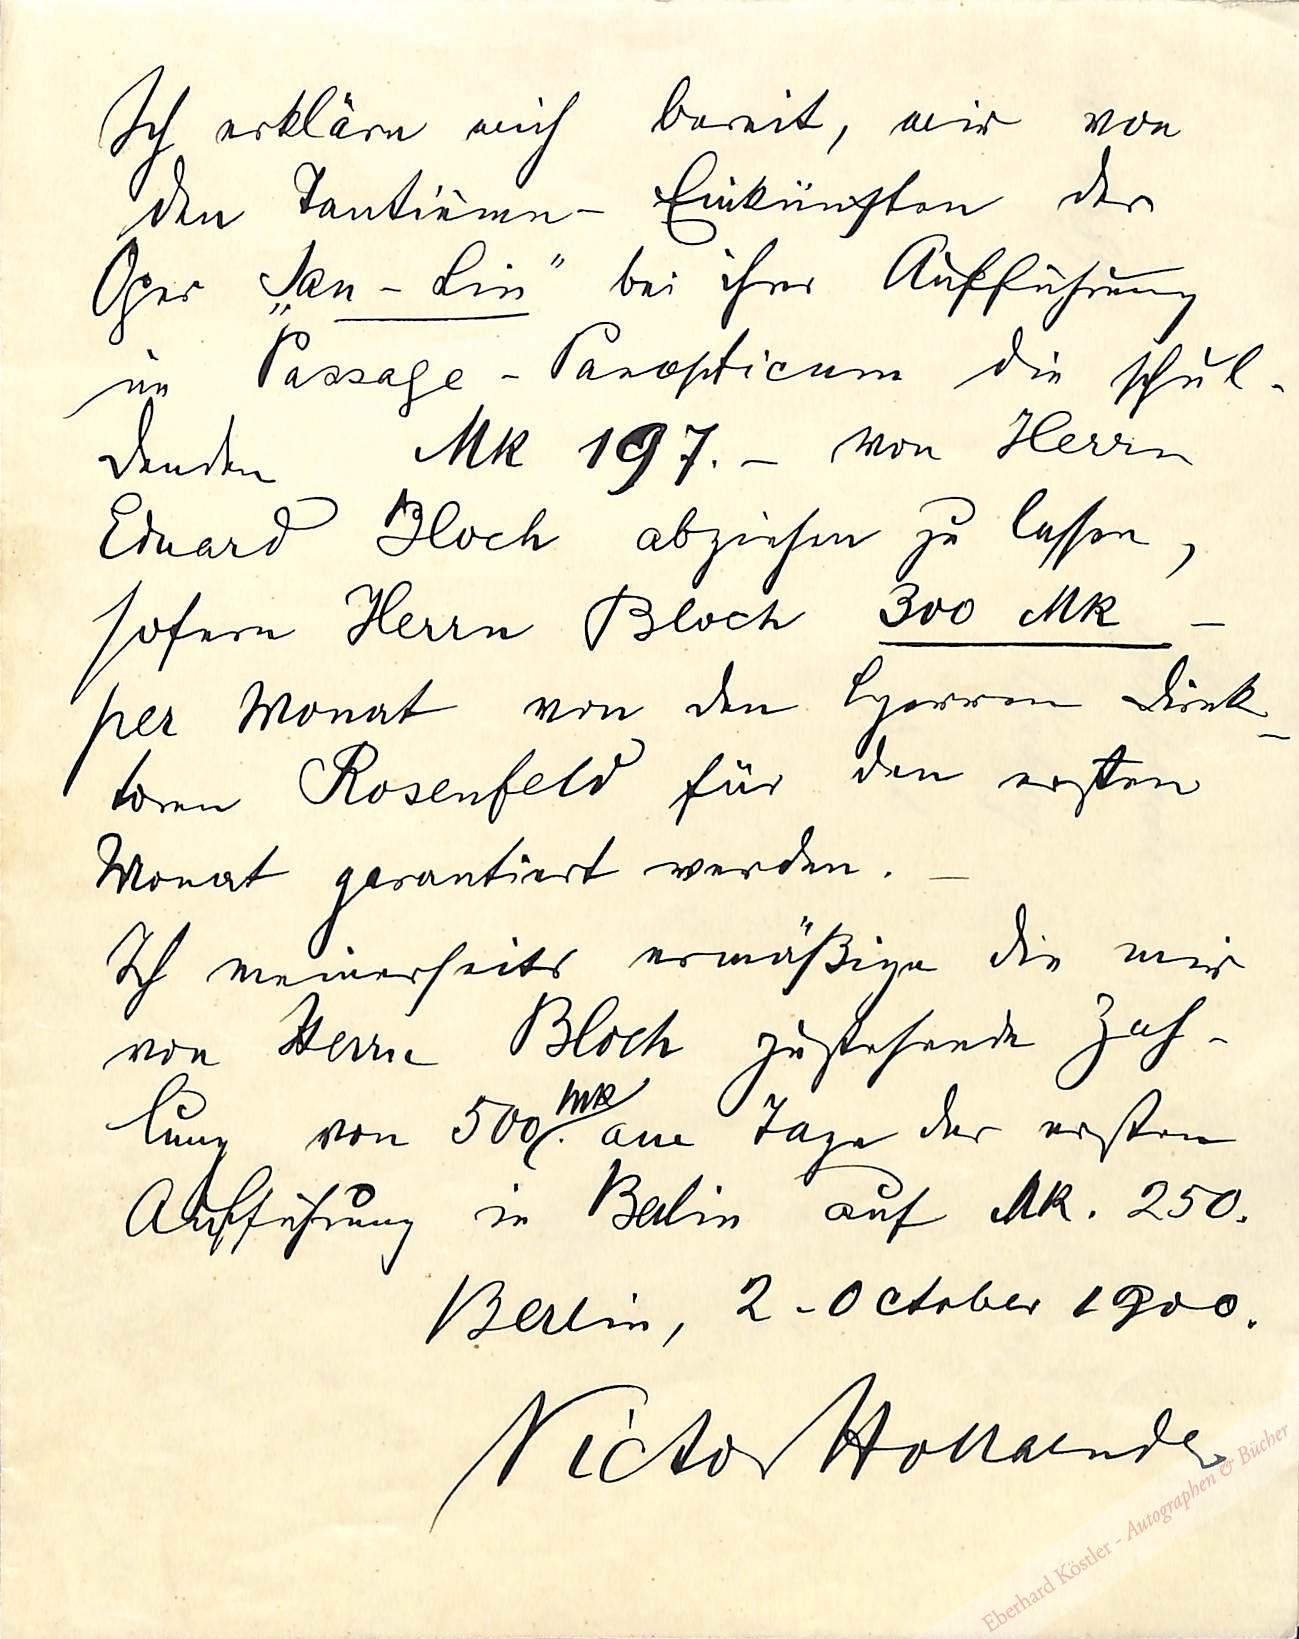 Ich erkläre mich bereit, mir von
den Tantièmen-Einkünften der
Oper „San-Lin" bei ihrer Aufführung
im Passage-Panopticum die schul-
denden MK 197.- von Herrn
Eduard Bloch abziehen zu lassen,
sofern Herrn Bloch 300 MK -
per Monat von den Herren Direk-
toren Rosenfeld für den ersten
Monat garantiert werden. -
Ich meinerseits ermäßige die mir
von Herrn Bloch zustehende Zah-
lung von 500 MK. am Tage der ersten
Aufführung in Berlin auf MK. 250.
Berlin, 2. October 1900.
Victor Hollaender
Eberhard Köstler - Autographen & Bücher